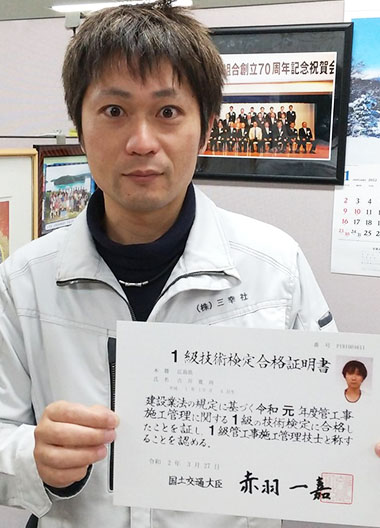 組合創立70周年記念祝賀会
1
(株)三幸社
1級技術検定合格証明書
本籍 広島県
氏名
建設業法の規定に基づく令和元年度管工事
施工管理に関する1級の技術検定に合格し
たことを証し1級管工事施工管理技士と称す
ることを認める。
令和 2年 3月27日
国土交通大臣 赤羽一嘉